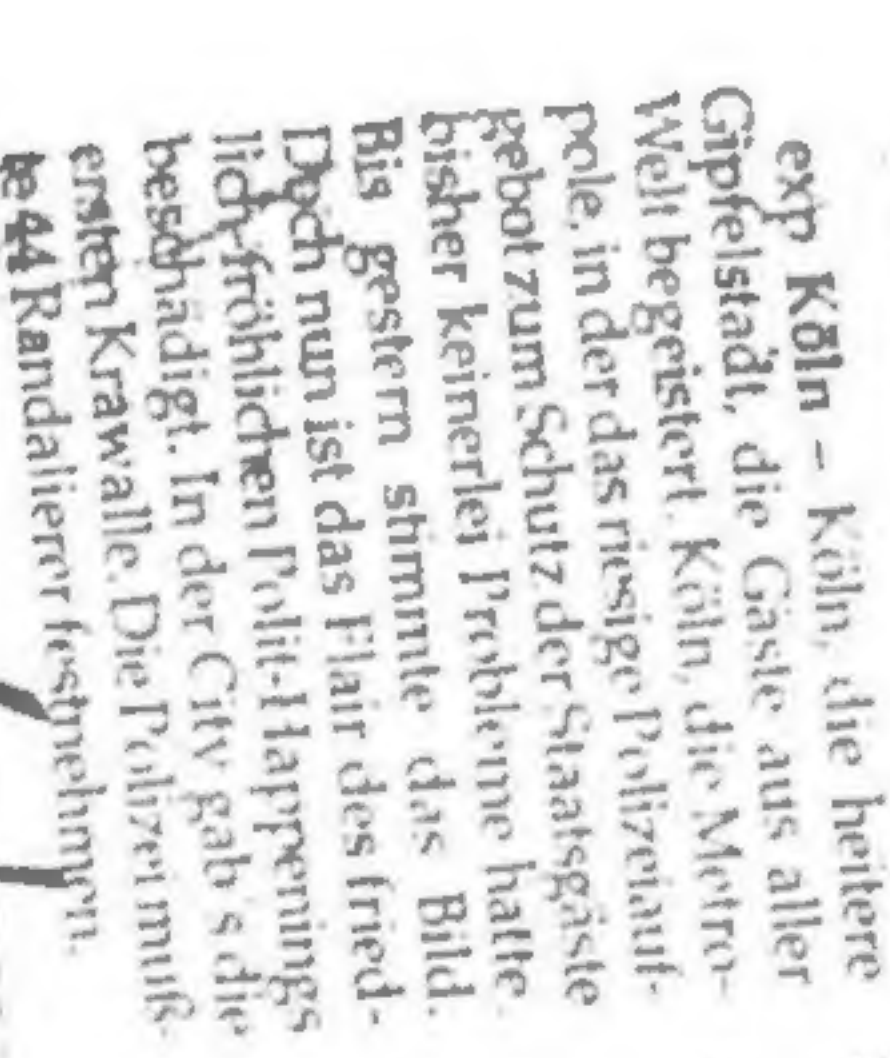 exp Köln – Köln, die heitere
Gipfelstadt, die Gäste aus aller
Welt begeistert. Köln, die Metro-
pole, in der das riesige Polizeiauf-
gebot zum Schutz der Staatsgäste
bisher keinerlei Probleme hatte.
Bis gestern stimmte das Bild.
Doch nun ist das Flair des fried-
lich-fröhlichen Polit-Happenings
beschädigt. In der City gab's die
ersten Krawalle. Die Polizei muß-
te 44 Randalierer festnehmen.